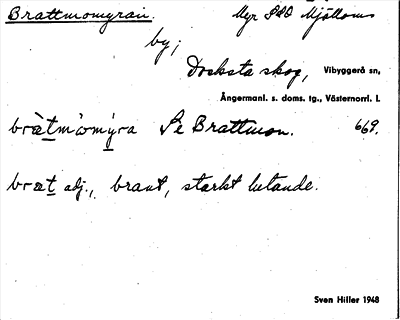 Brattmomyran. Myr SSO Mjälloms
by;
Docksta skog, Vibyggerå sn,
Ångermanl. s. doms. tg., Västernorrl. l.
bràt̲mòmy̲ra Se Brattmon. 669.
brat̲ adj., brant, starkt lutande.
Sven Hiller 1948